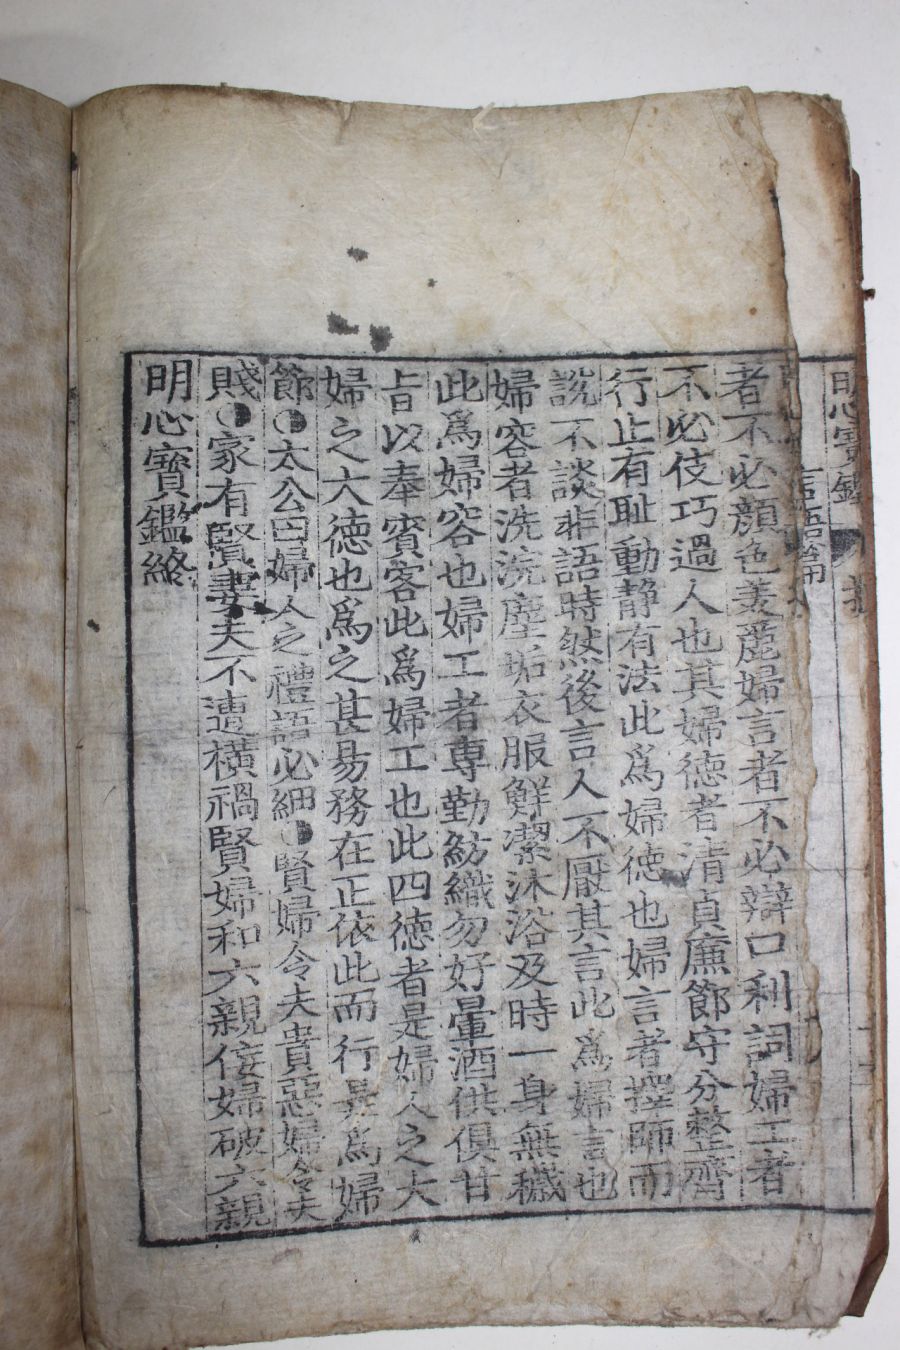 者不必顔色美麗婦言者不必辯口利詞婦工者
不必伎巧過人也其婦徳者清貞廉節守分整齊
行止有耻動静有法此爲婦徳也婦言者擇師而
說不談非語時然後言人不厭其言此爲婦言也
婦容者洗浣塵垢衣服鮮潔沐浴及時一身無穢
此爲婦容也婦工者專勤紡織勿好暈酒供俱甘
旨以奉賓客此爲婦工也此四徳者是婦人之大
婦之大徳也爲之甚易務在正依此而行是爲婦
節太公曰婦人之禮語必細賢婦令夫貴惡婦令夫
賤家有賢妻夫不遭橫禍賢婦和六親侫婦破六親
明心寶鑑終
明心寶鑑
言語篇